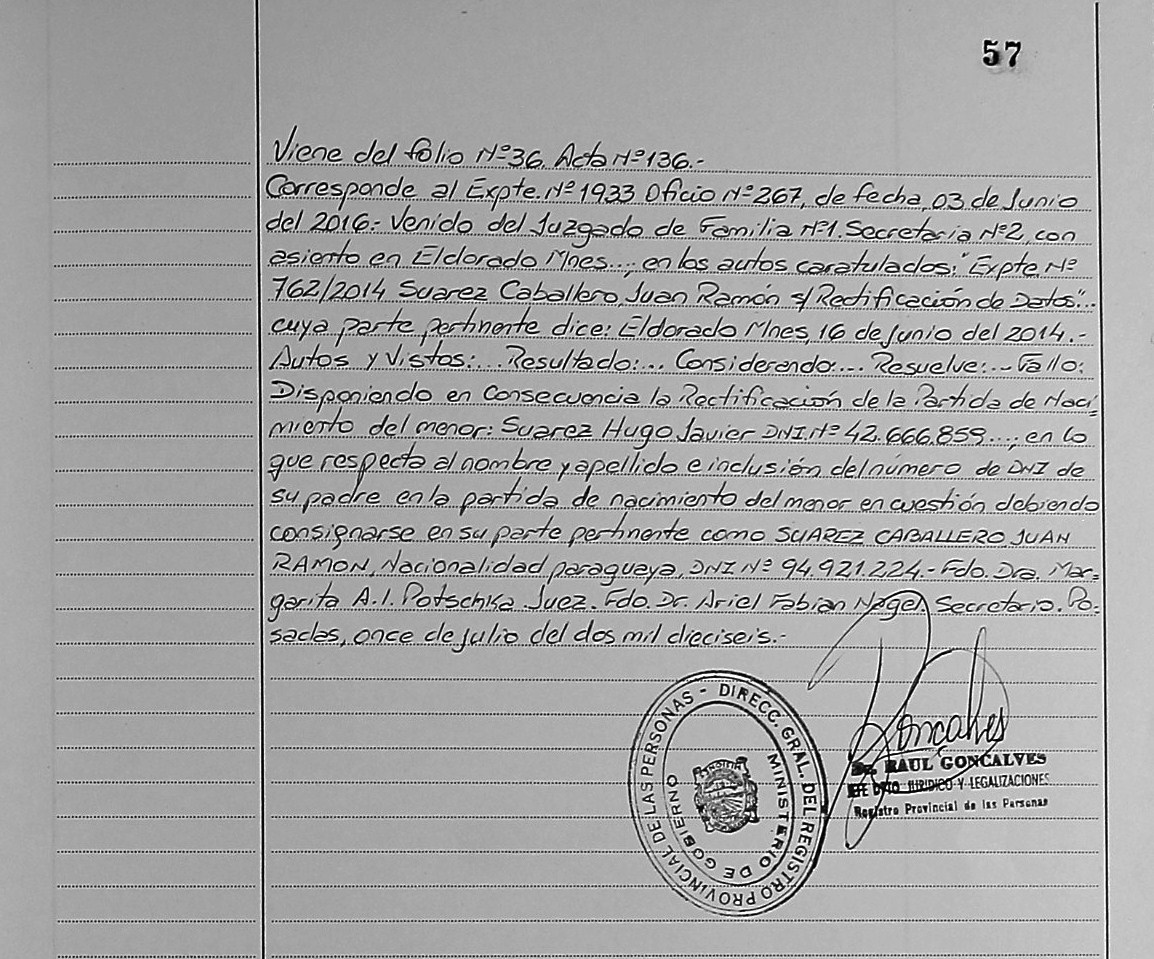 57
Viene del folio Nº36. Acta Nº136.-
Corresponde al Expte. Nº1933 Oficio Nº267, de fecha, 03 de Junio
del 2016: Venido del Juzgado de Familia Nº1. Secretaria Nº2, con
asiento en Eldorado Mnes...; en los autos caratulados: "Expte. Nº
762/2014 Suarez Caballero, Juan Ramón s/ Rectificación de Datos"...
cuya parte pertinente dice: Eldorado Mnes, 16 de Junio del 2014.-
Autos y Vistos:... Resultado:... Considerando:... Resuelve:... Fallo:
Disponiendo en Consecuencia la Rectificación de la Partida de Naci-
miento del menor: Suarez Hugo Javier DNI. Nº 42.666.859...; en lo
que respecta al nombre y apellido e inclusión del número de DNI de
su padre en la partida de nacimiento del menor en cuestión debiendo
consignarse en su parte pertinente como SUAREZ CABALLERO, JUAN
RAMON, Nacionalidad paraguaya, DNI Nº 94.921.224.- Fdo. Dra. Mar-
garita A. I. Potschka Juez. Fdo. Dr. Ariel Fabian Nagel Secretario. Po-
sadas, once de julio del dos mil dieciseis.-
DIRECC. GRAL. DEL REGISTRO PROVINCIAL DE LAS PERSONAS -
MINISTERIO DE GOBIERNO
Goncalves
Dr. RAUL GONCALVES
JEFE DPTO JURIDICO Y LEGALIZACIONES
Registro Provincial de las Personas